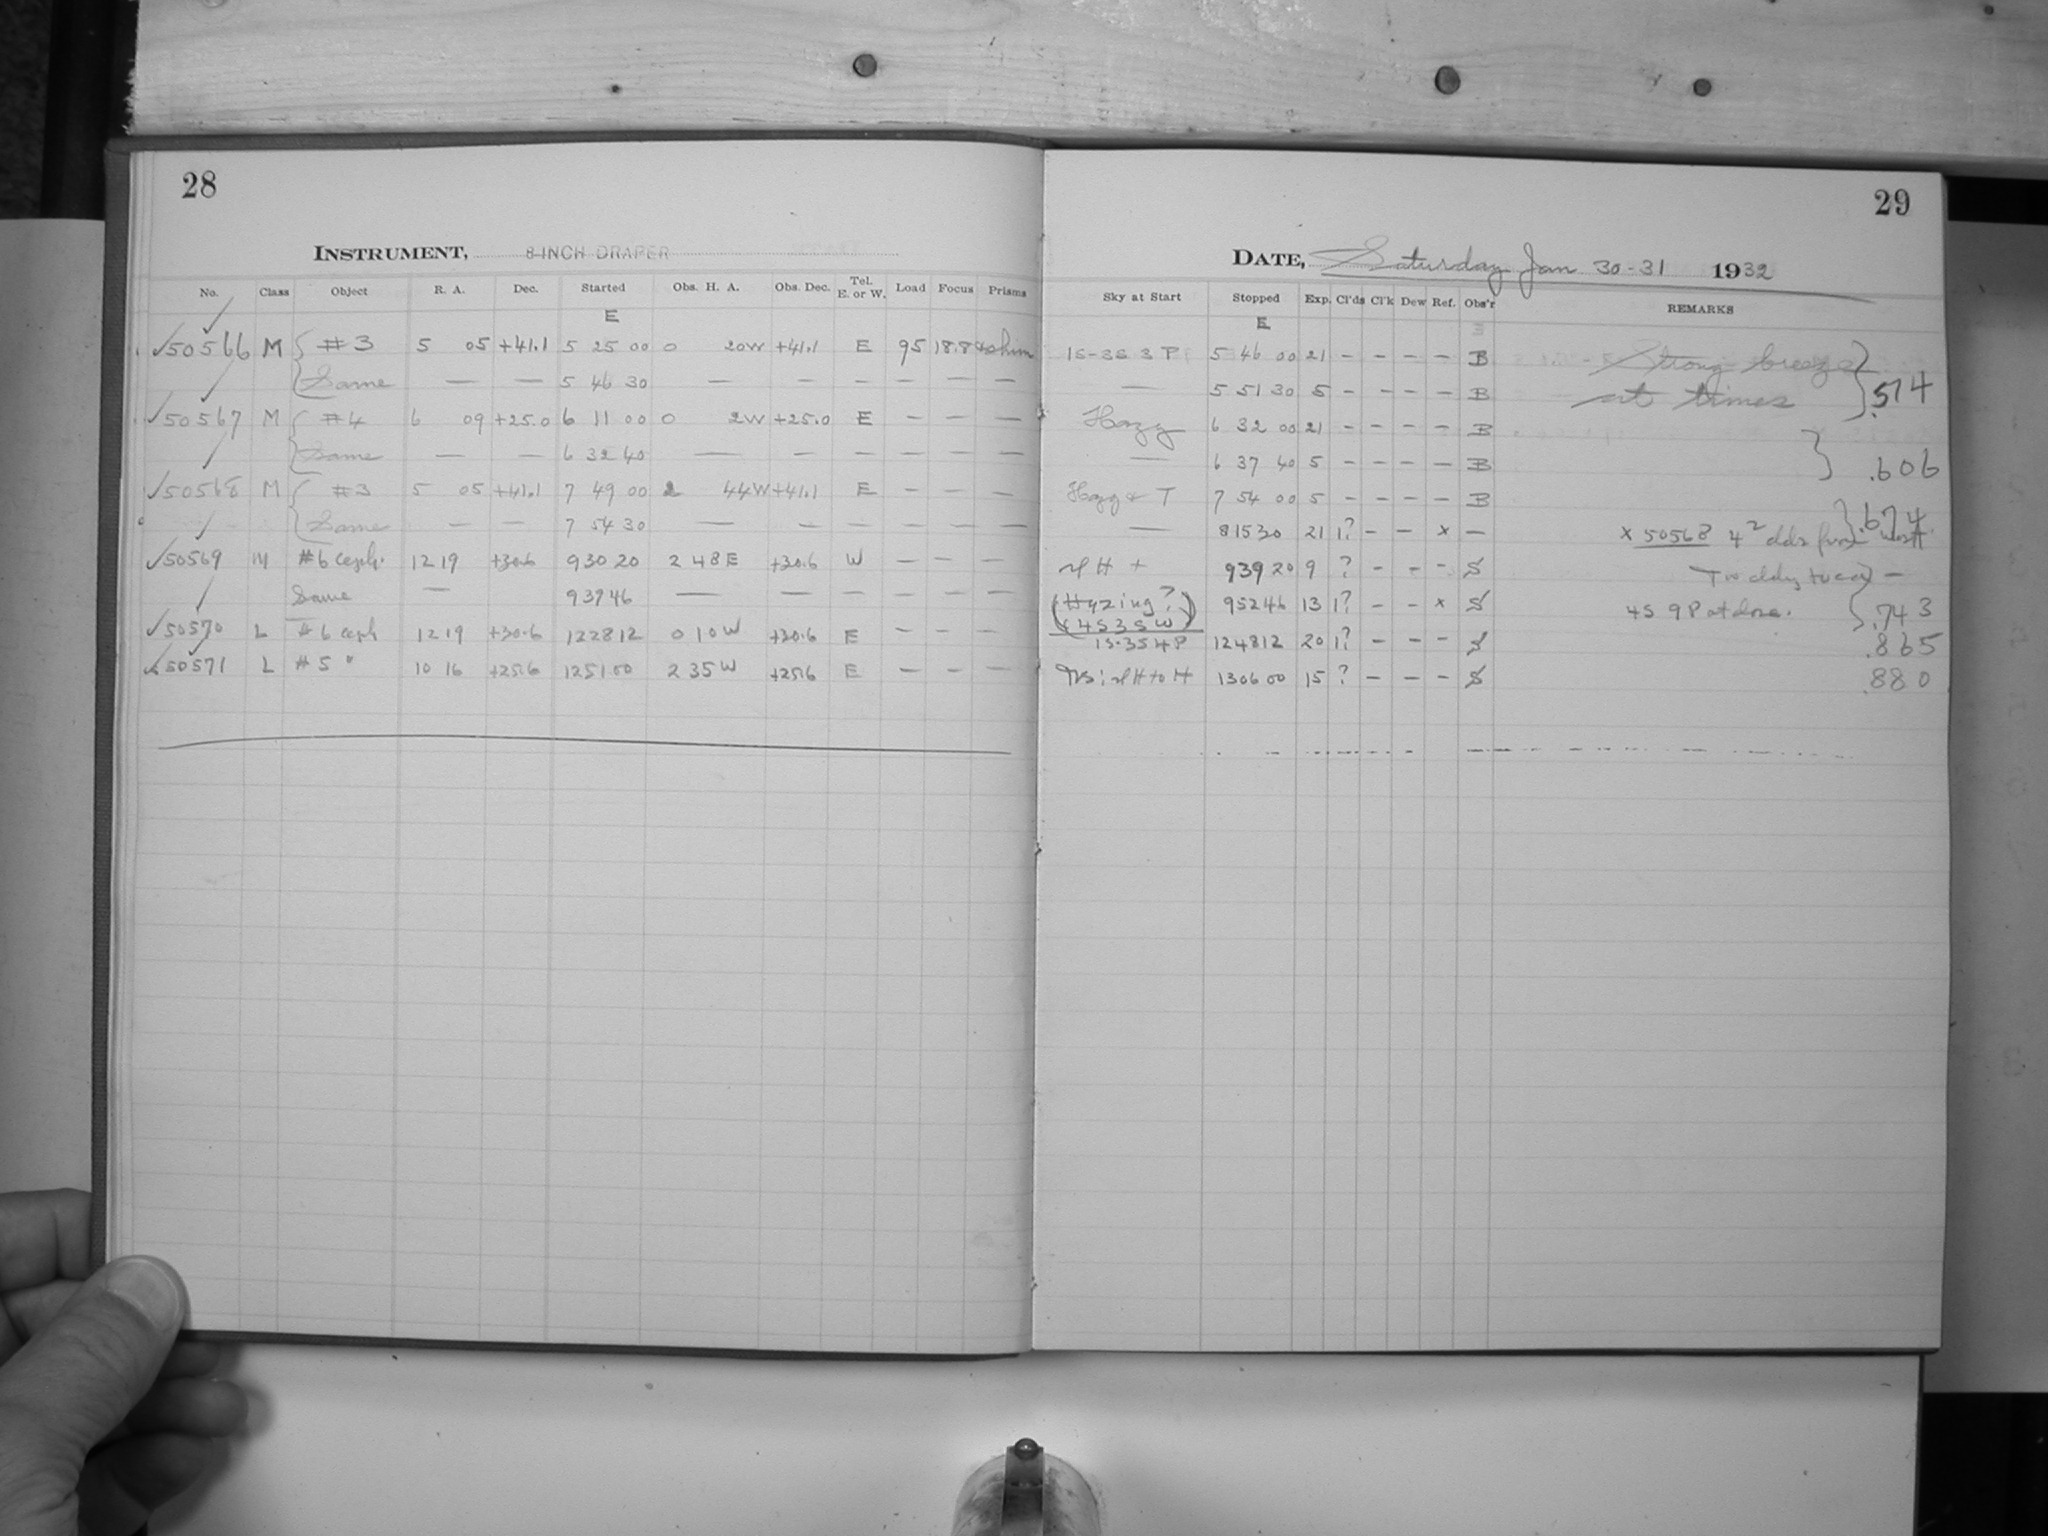 28
INSTRUMENT, 8-INCH DRAPER
No. Class Object R. A. Dec. Started Obs. H. A. Obs. Dec. Tel. E. or W. Load Focus Prisms
E
50566 M #3 5 05 +41.1 5 25 00 0 20W +41.1 E 95 18.8
Same — — 5 46 30 — — — — — —
50567 M #4 6 09 +25.0 6 11 00 0 2W +25.0 E — — —
Same — — 6 32 40 — — — — — —
50568 M #3 5 05 +41.1 7 49 00 2 44W +41.1 E — — —
Same — — 7 54 30 — — — — — —
50569 M #6 ceph. 12 19 +30.6 9 30 20 2 48 E +30.6 W — — —
Same — 9 39 46 — — — — — —
50570 L #6 ceph 12 19 +30.6 12 28 12 0 10 W +30.6 E — — —
50571 L #5 " 10 16 +25.6 12 51 00 2 35 W +25.6 E — — —
29
DATE, Saturday Jan 30-31 1932
Sky at Start Stopped Exp. Cl'ds Cl'k Dew Ref. Obs'r REMARKS
E
1S-3S 3 P 5 46 00 21 — — — — B Strong breeze
— 5 51 30 5 — — — — B at times .514
Hazy 6 32 00 21 — — — — B
— 6 37 40 5 — — — — B .606
Hazy & T 7 54 00 5 — — — — B
— 8 15 30 21 1? — — x — x 50568 4² .674
H + 9 39 20 9 ? — — — S
(Hyzing?) 9 52 46 13 1? — — x S 4S 9P at close. .743
(4S 3S W)
1S.3S 4P 12 48 12 20 1? — — — S .865
H to H 13 06 00 15 ? — — — S .880